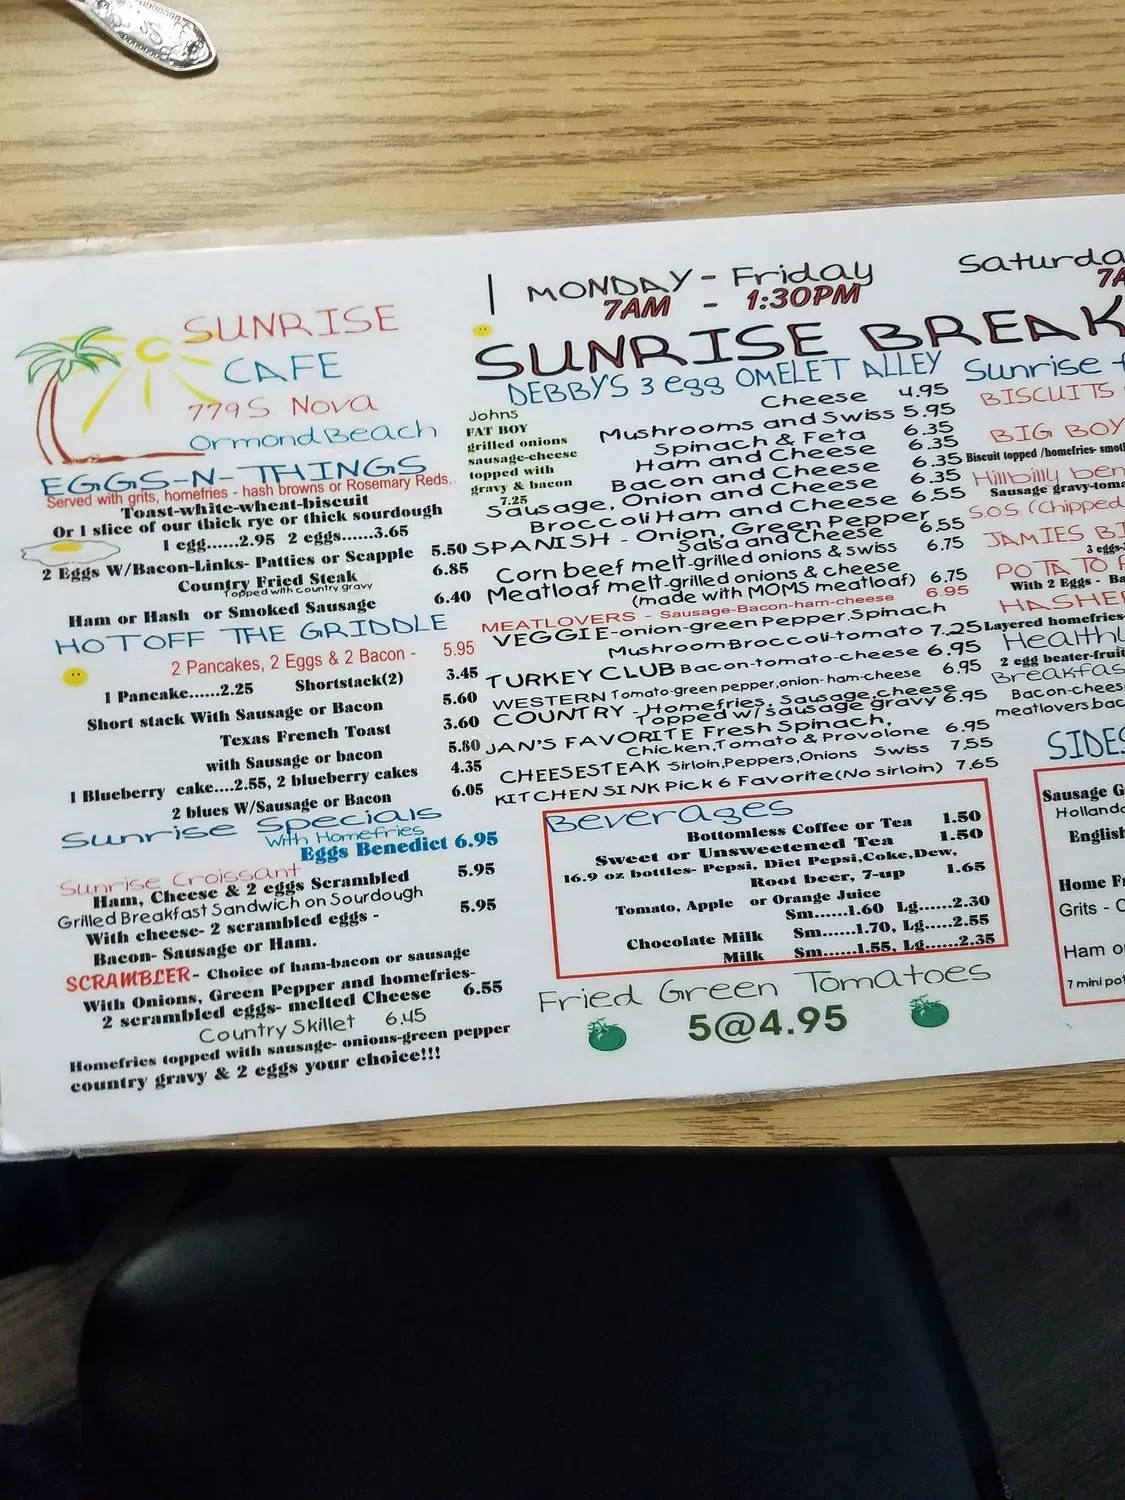 SUNRISE
CAFE
779 S. Nova
Ormond Beach
EGGS-N-THINGS
Served with grits, homefries - hash browns or Rosemary Reds..
Toast-white-wheat-biscuit
Or 1 slice of our thick rye or thick sourdough
1 egg......2.95 2 eggs......3.65
2 Eggs W/Bacon-Links- Patties or Scapple 5.50
Country Fried Steak 6.85
Topped with country gravy
Ham or Hash or Smoked Sausage 6.40
HOT OFF THE GRIDDLE
2 Pancakes, 2 Eggs & 2 Bacon - 5.95
1 Pancake......2.25 Shortstack(2) 3.45
Short stack With Sausage or Bacon 5.60
Texas French Toast 3.60
with Sausage or bacon 5.80
1 Blueberry cake....2.55, 2 blueberry cakes 4.35
2 blues W/Sausage or Bacon 6.05
Sunrise Specials
With Homefries
Eggs Benedict 6.95
Sunrise Croissant
Ham, Cheese & 2 eggs Scrambled 5.95
Grilled Breakfast Sandwich on Sourdough
With cheese- 2 scrambled eggs - 5.95
Bacon- Sausage or Ham.
SCRAMBLER- Choice of ham-bacon or sausage
With Onions, Green Pepper and homefries-
2 scrambled eggs- melted Cheese 6.55
Country Skillet 6.45
Homefries topped with sausage- onions-green pepper
country gravy & 2 eggs your choice!!!
MONDAY - Friday
7AM - 1:30PM
SUNRISE BREAK
DEBBY'S 3 egg OMELET ALLEY
Johns
FAT BOY
grilled onions
sausage-cheese
topped with
gravy & bacon
7.25
Cheese 4.95
Mushrooms and Swiss 5.95
Spinach & Feta 6.35
Ham and Cheese 6.35
Bacon and Cheese 6.35
Sausage, Onion and Cheese 6.35
Broccoli Ham and Cheese 6.55
SPANISH - Onion, Green Pepper
Salsa and Cheese 6.55
Corn beef melt-grilled onions & swiss 6.75
Meatloaf melt-grilled onions & cheese
(made with MOMS meatloaf) 6.75
MEATLOVERS - Sausage-Bacon-ham-cheese 6.95
VEGGIE-onion-green Pepper.Spinach
Mushroom Broccoli-tomato 7.25
TURKEY CLUB Bacon-tomato-cheese 6.95
WESTERN Tomato-green pepper,onion-ham-cheese 6.95
COUNTRY - Homefries, Sausage,cheese
Topped w/ sausage gravy 6.95
JAN'S FAVORITE Fresh Spinach,
Chicken,Tomato & Provolone 6.95
CHEESESTEAK Sirloin,Peppers,Onions Swiss 7.55
KITCHENSINK Pick 6 Favorite(No sirloin) 7.65
Beverages
Bottomless Coffee or Tea 1.50
Sweet or Unsweetened Tea 1.50
16.9 oz bottles- Pepsi, Diet Pepsi,Coke,Dew,
Root beer, 7-up 1.65
Tomato, Apple or Orange Juice
Sm......1.60 Lg......2.30
Chocolate Milk Sm......1.70, Lg......2.55
Milk Sm......1.55, Lg......2.35
Fried Green Tomatoes
5@4.95
Saturda
7A
Sunrise
BISCUITS
BIG BOY
Biscuit topped /homefries-
Hillbilly ben
Sausage gravy-toma
S.O.S (Chipped
JAMIES BI
3 eggs-
POTATO
With 2 Eggs - Ba
HASHE
Layered homefries-
Healthy
2 egg beater-fruit
Breakfas
Bacon-chees
meatlovers.bac
SIDES
Sausage G
Holland
English
Home Fr
Grits - C
Ham o
7 mini pot